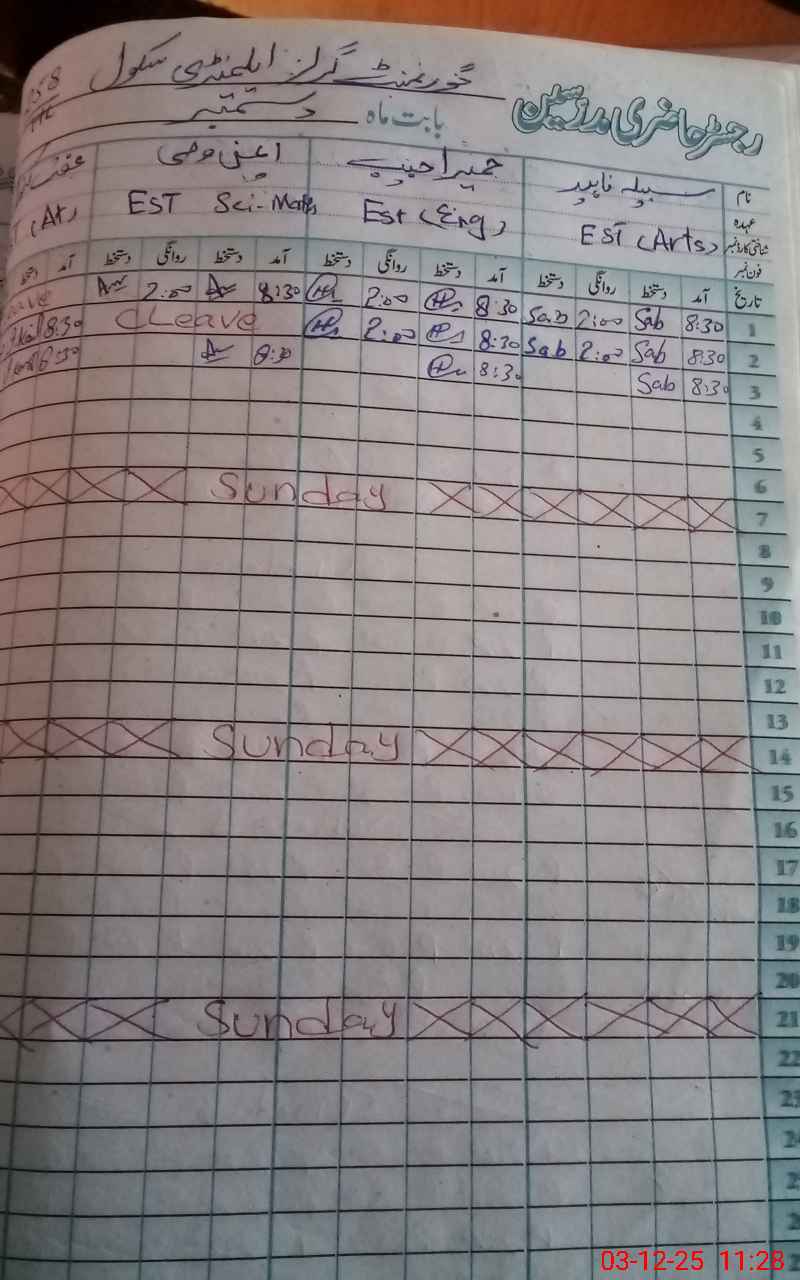 رجسٹر حاضری مدرسین گورنمنٹ گرلز ایلیمنٹری سکول
بابت ماہ دسمبر
نام حمیرا حبیب
عہدہ EST (Arts) Est (Eng) EST Sci-Math
شناختی کارڈ نمبر
فون نمبر
تاریخ آمد دستخط روانگی دستخط آمد دستخط روانگی دستخط آمد دستخط روانگی دستخط آمد
1 8:30 Sab 2:00 Sab 8:30 2:00 8:30 2:00
2 8:30 Sab 2:00 Sab 8:30 2:00 CLeave 8:30
3 8:30 Sab 8:30 8:30 8:30
4
5
6
7 Sunday
8
9
10
11
12
13
14 Sunday
15
16
17
18
19
20
21 Sunday
22
23
03-12-25 11:28